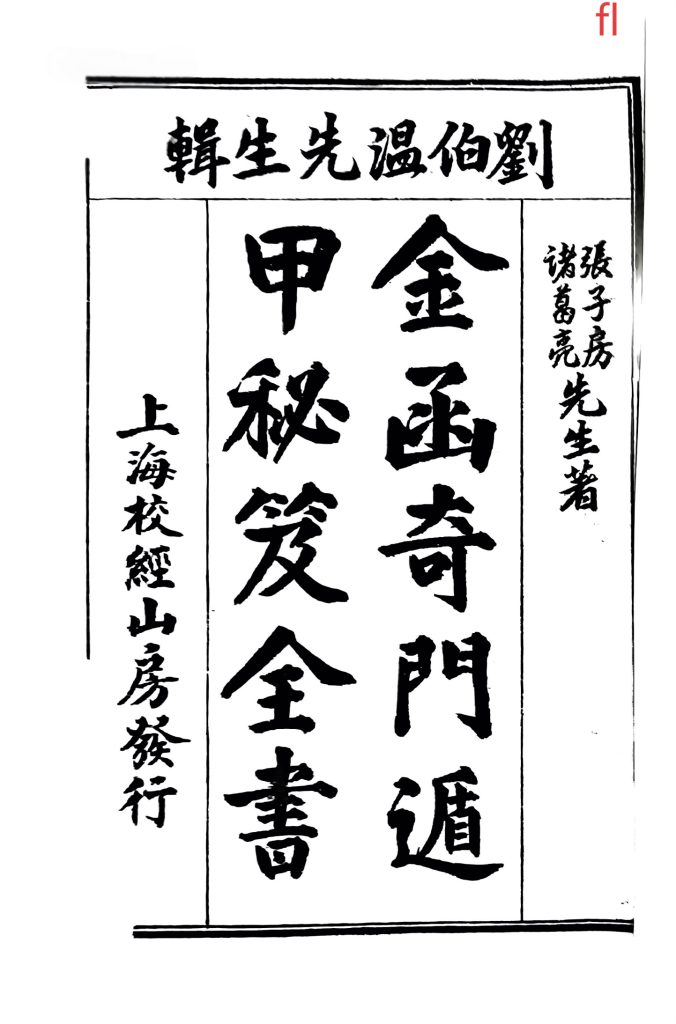 fl
劉伯温先生輯
張子房
諸葛亮
先生著
金函奇門遁
甲秘笈全書
上海校經山房發行